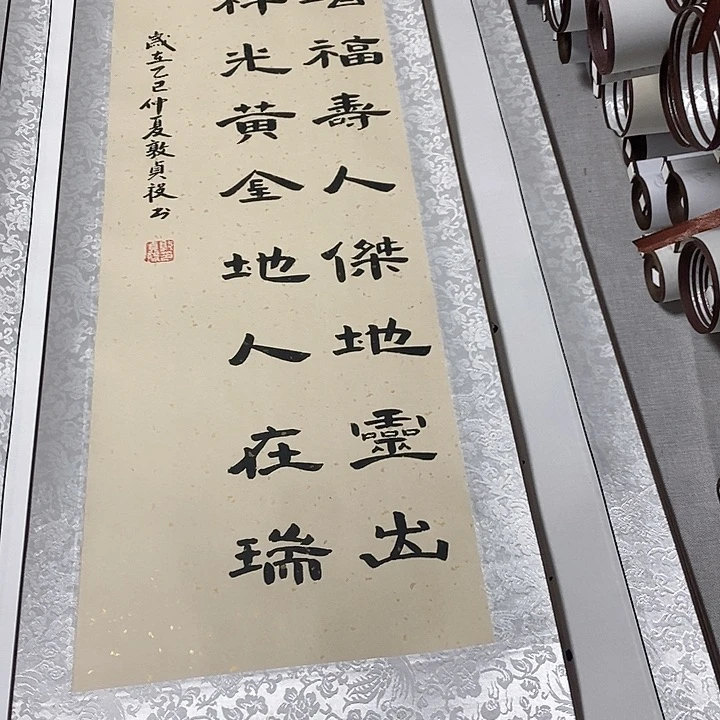 福壽人傑地靈出
光黃金地人在瑞
歲在乙巳仲夏敦貞书